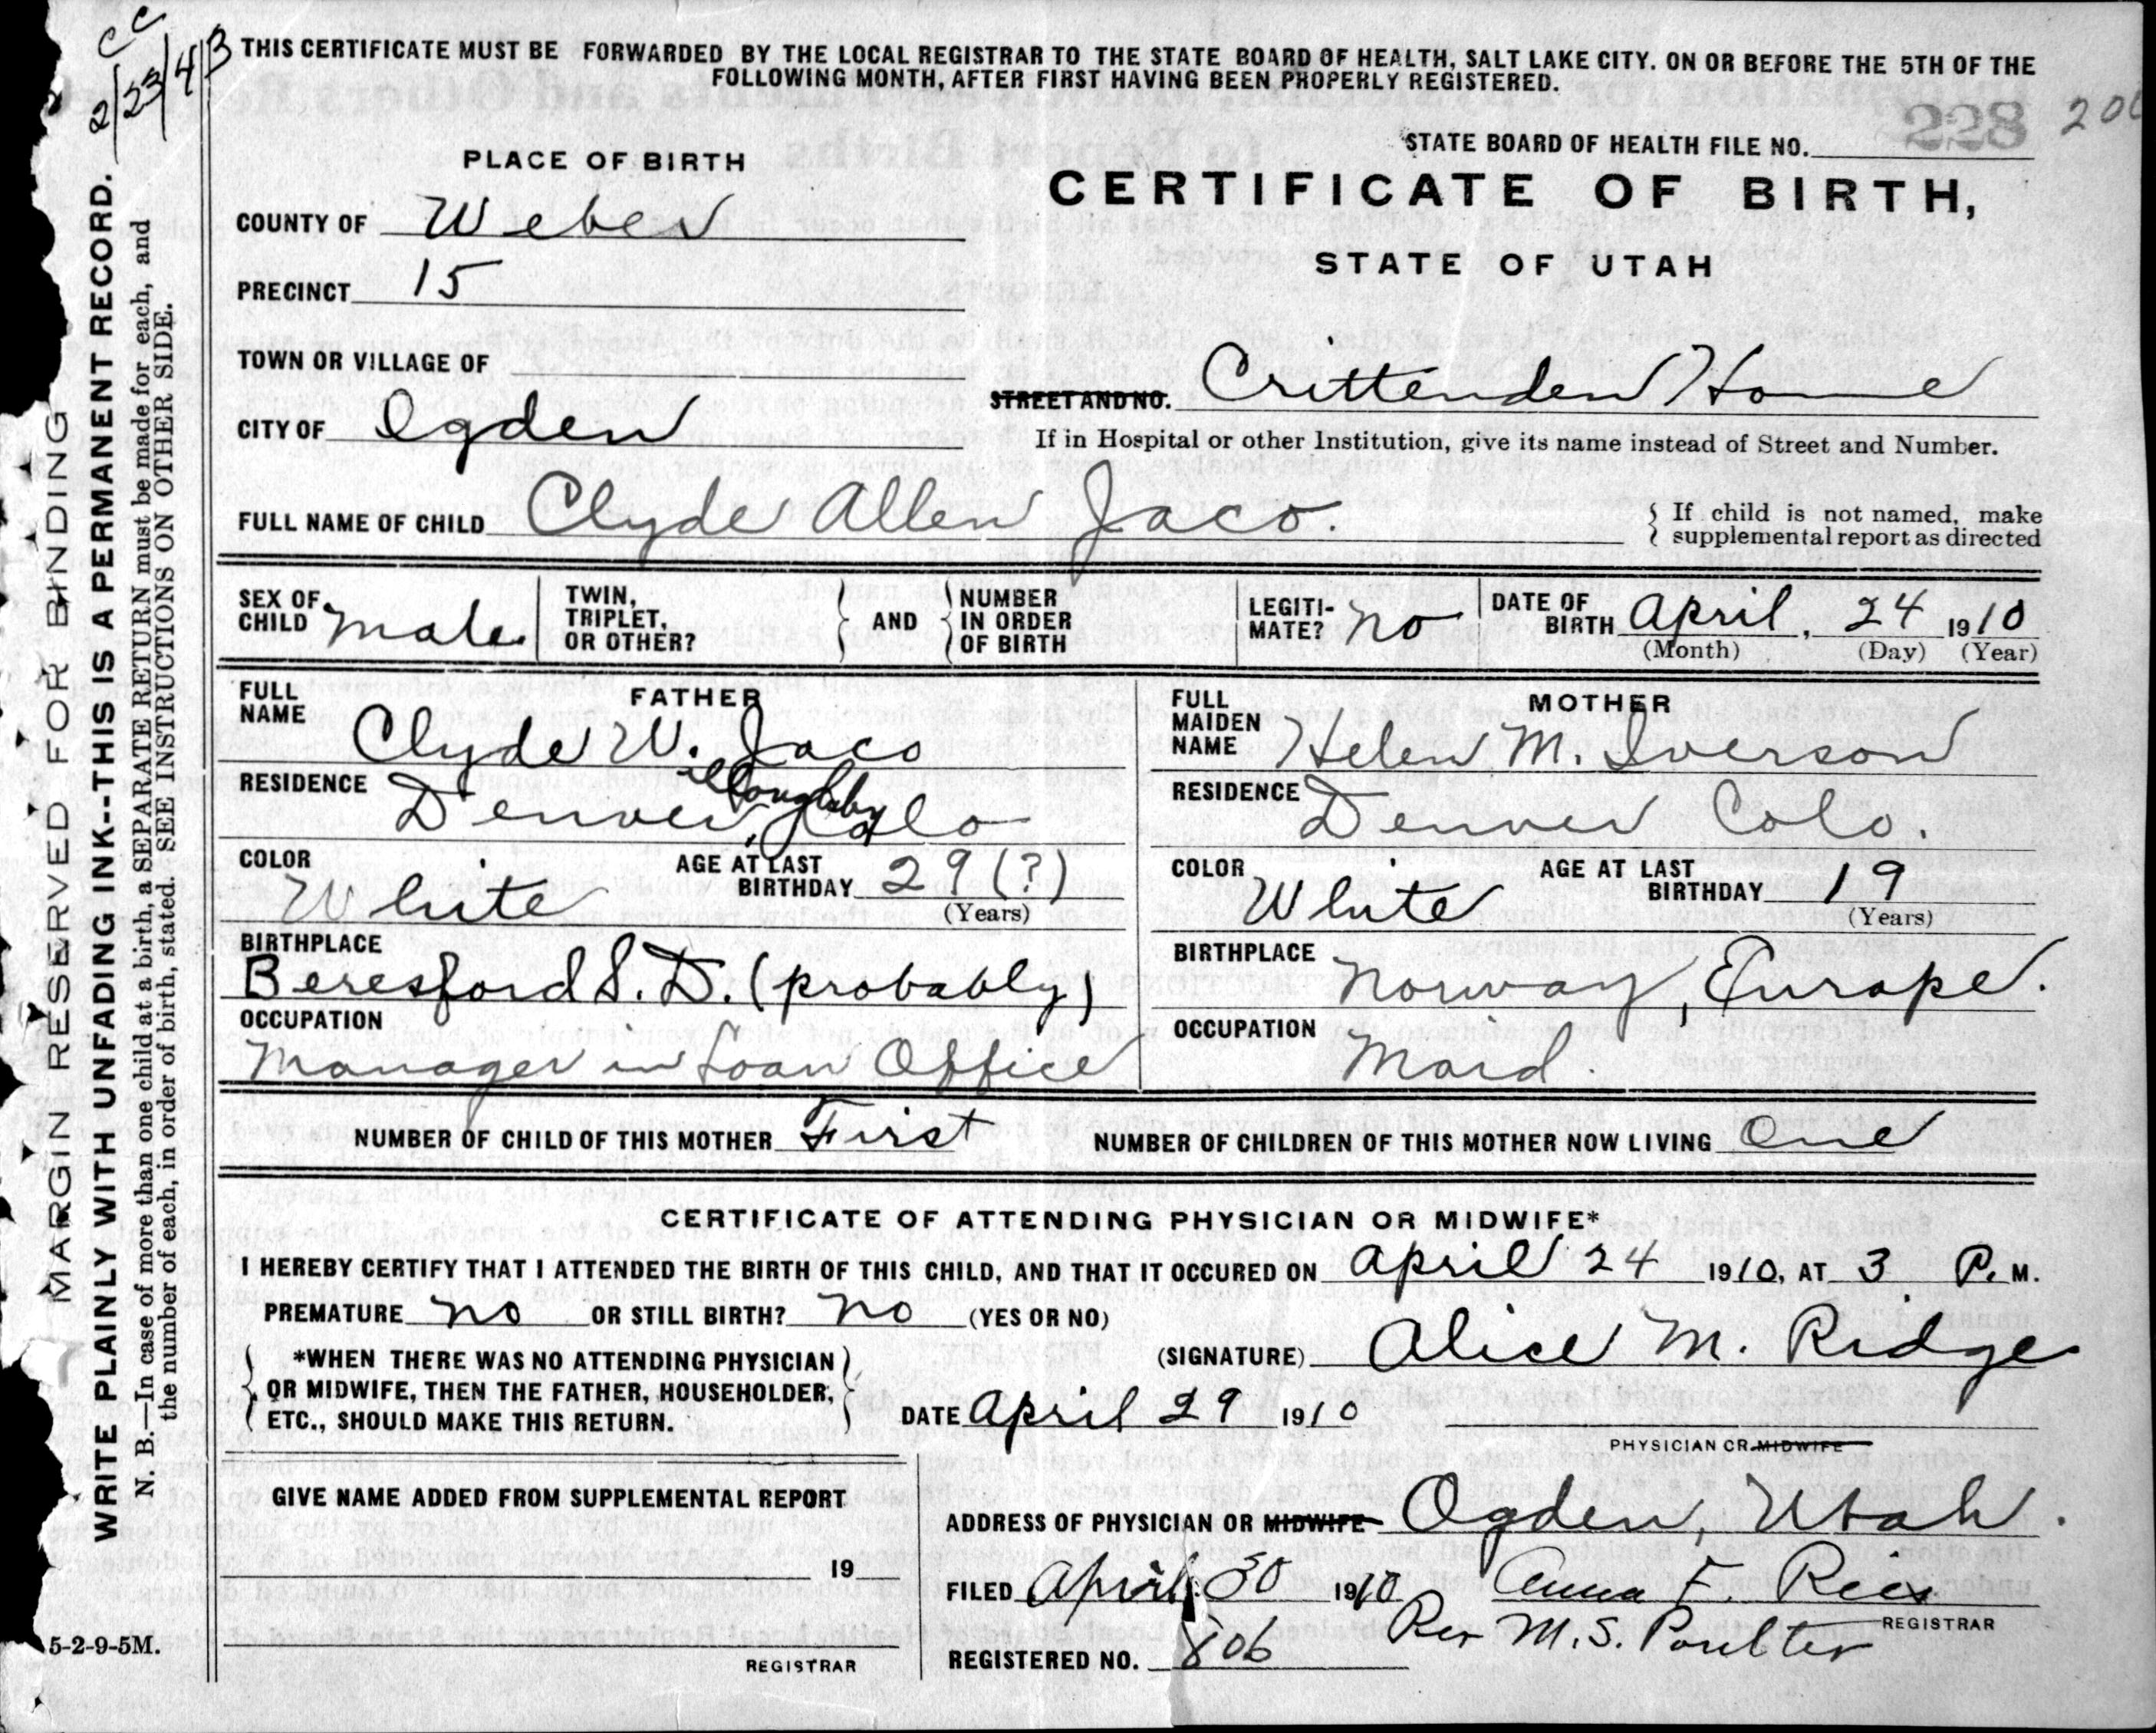 cc
2/23/43
THIS CERTIFICATE MUST BE FORWARDED BY THE LOCAL REGISTRAR TO THE STATE BOARD OF HEALTH, SALT LAKE CITY. ON OR BEFORE THE 5TH OF THE
FOLLOWING MONTH, AFTER FIRST HAVING BEEN PROPERLY REGISTERED.
STATE BOARD OF HEALTH FILE NO. 228
PLACE OF BIRTH
CERTIFICATE OF BIRTH,
STATE OF UTAH
COUNTY OF Weber
PRECINCT 15
TOWN OR VILLAGE OF
STREET AND NO. Crittenden Home
CITY OF Ogden
If in Hospital or other Institution, give its name instead of Street and Number.
FULL NAME OF CHILD Clyde Allen Jaco.
If child is not named, make
supplemental report as directed
SEX OF CHILD male
TWIN, TRIPLET, OR OTHER?
AND
NUMBER IN ORDER OF BIRTH
LEGITI-MATE? no
DATE OF BIRTH April, 24 1910
(Month) (Day) (Year)
FATHER
FULL NAME Clyde W. Jaco
illoughby
RESIDENCE Denver, Colo
COLOR White
AGE AT LAST BIRTHDAY 29(?)
(Years)
BIRTHPLACE
Beresford S.D. (probably)
OCCUPATION
Manager in Loan Office
MOTHER
FULL MAIDEN NAME Helen M. Iverson
RESIDENCE Denver Colo.
COLOR White
AGE AT LAST BIRTHDAY 19
(Years)
BIRTHPLACE Norway, Europe.
OCCUPATION Maid.
NUMBER OF CHILD OF THIS MOTHER First NUMBER OF CHILDREN OF THIS MOTHER NOW LIVING One
CERTIFICATE OF ATTENDING PHYSICIAN OR MIDWIFE*
I HEREBY CERTIFY THAT I ATTENDED THE BIRTH OF THIS CHILD, AND THAT IT OCCURED ON April 24 1910, AT 3 P. M.
PREMATURE no OR STILL BIRTH? no (YES OR NO)
*WHEN THERE WAS NO ATTENDING PHYSICIAN
OR MIDWIFE, THEN THE FATHER, HOUSEHOLDER,
ETC., SHOULD MAKE THIS RETURN.
(SIGNATURE) Alice M. Ridge
DATE April 29 1910
PHYSICIAN OR MIDWIFE
GIVE NAME ADDED FROM SUPPLEMENTAL REPORT
19
REGISTRAR
ADDRESS OF PHYSICIAN OR MIDWIFE Ogden, Utah.
FILED April 30 1910 Anna F. Rees
REGISTRAR
Per M.S. Poulter
REGISTERED NO. 806
MARGIN RESERVED FOR BINDING
WRITE PLAINLY WITH UNFADING INK--THIS IS A PERMANENT RECORD.
N. B.—In case of more than one child at a birth, a SEPARATE RETURN must be made for each, and
the number of each, in order of birth, stated. SEE INSTRUCTIONS ON OTHER SIDE.
5-2-9-5M.